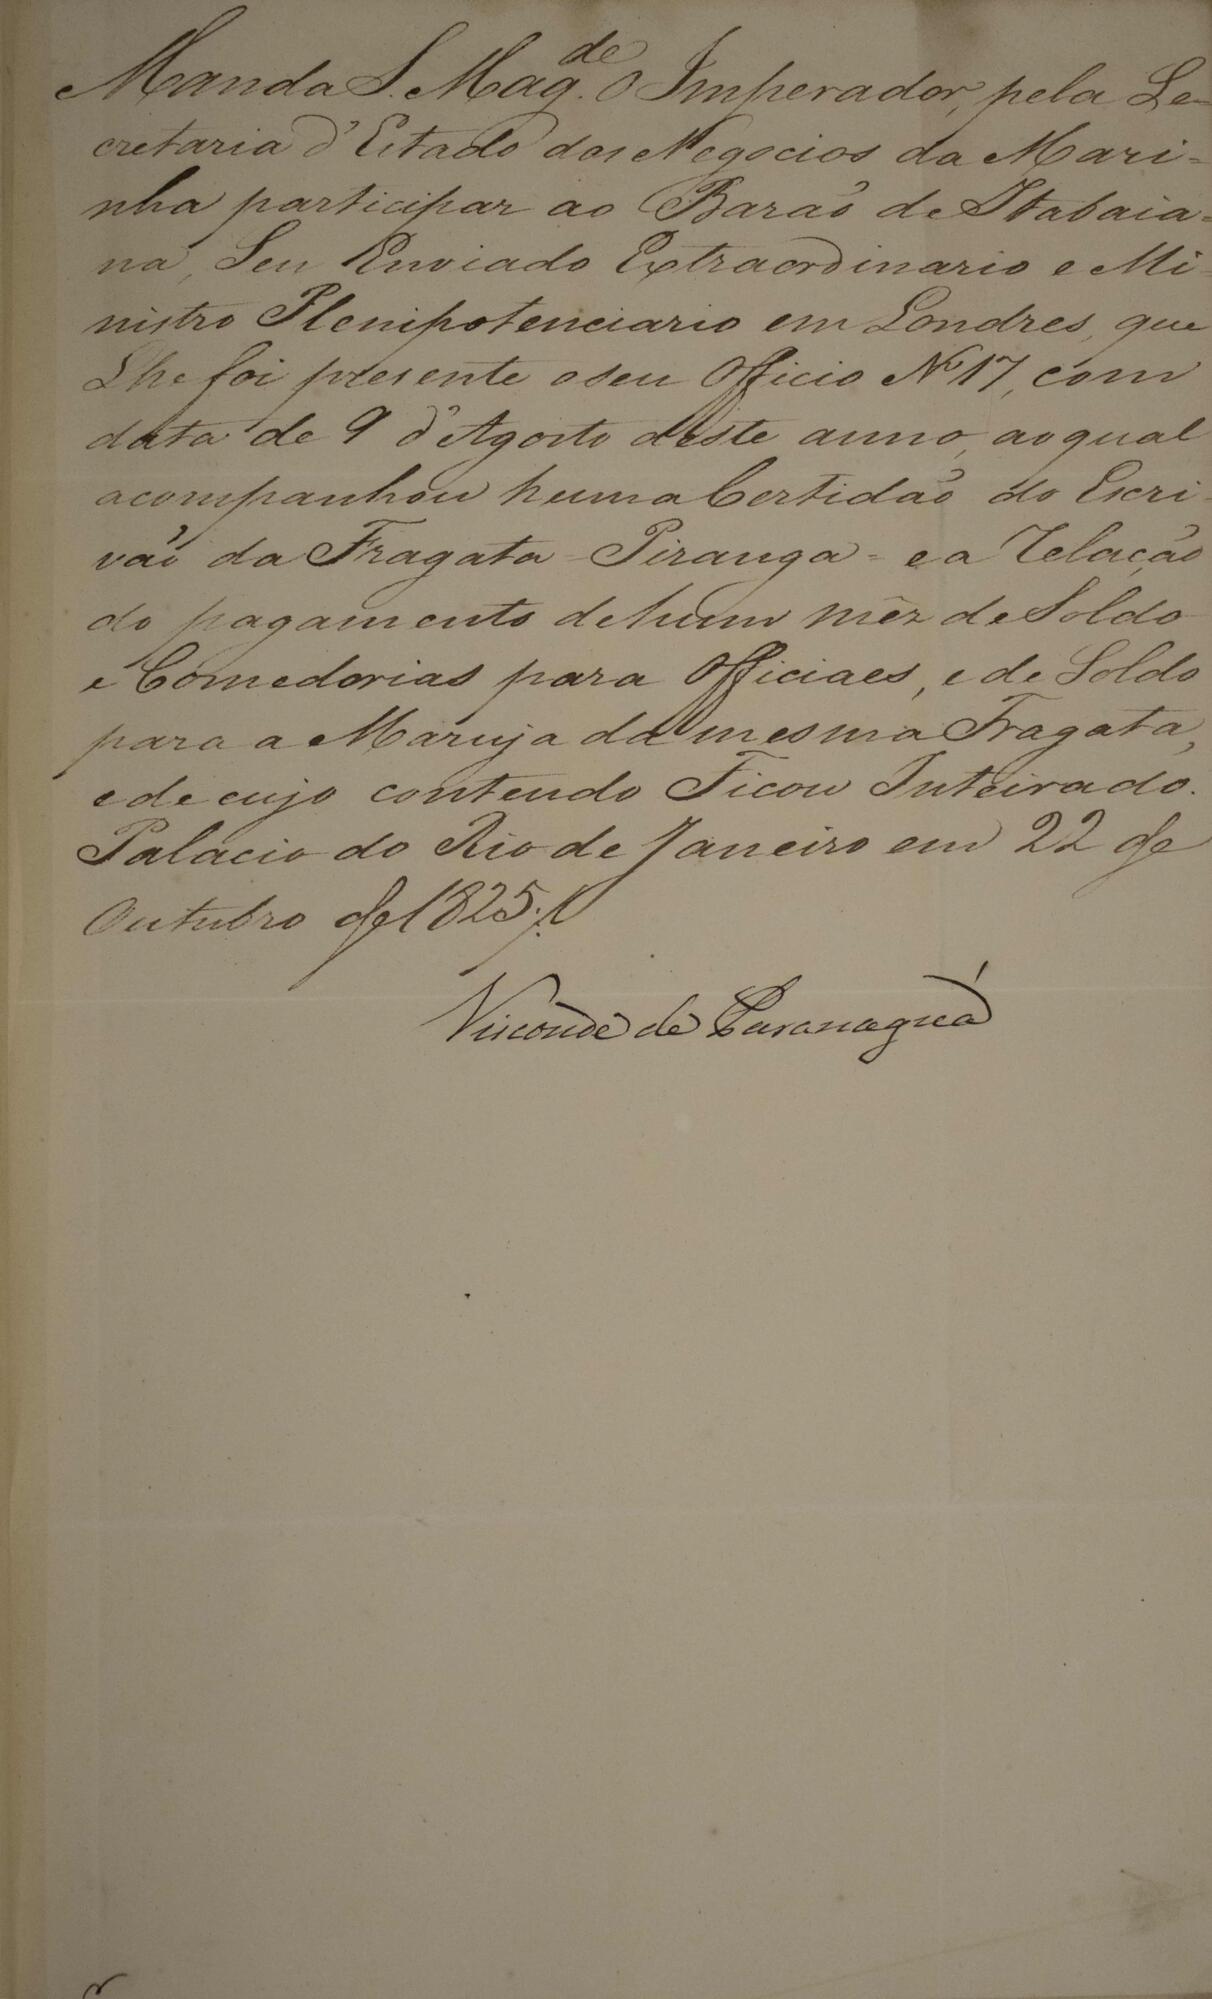 Manda S. Mag.de O Imperador, pela Se-
cretaria d'Estado dos Negocios da Mari-
nha participar ao Barão de Itabaia-
na, Seu Enviado Extraordinario e Mi-
nistro Plenipotenciario em Londres, que
Lhe foi presente o seu Officio Nº 17, com
data de 9 d'Agosto deste anno, ao qual
acompanhou huma Certidão do Escri-
vão da Fragata - Piranga = e a Relação
do pagamento de hum mêz de Soldo
e Comedorias para Officiaes, e de Soldo
para a Maruja da mesma Fragata,
e de cujo contendo Ficou Inteirado.
Palacio do Rio de Janeiro em 22 de
Outubro de 1825./.
Visconde de Paranaguá